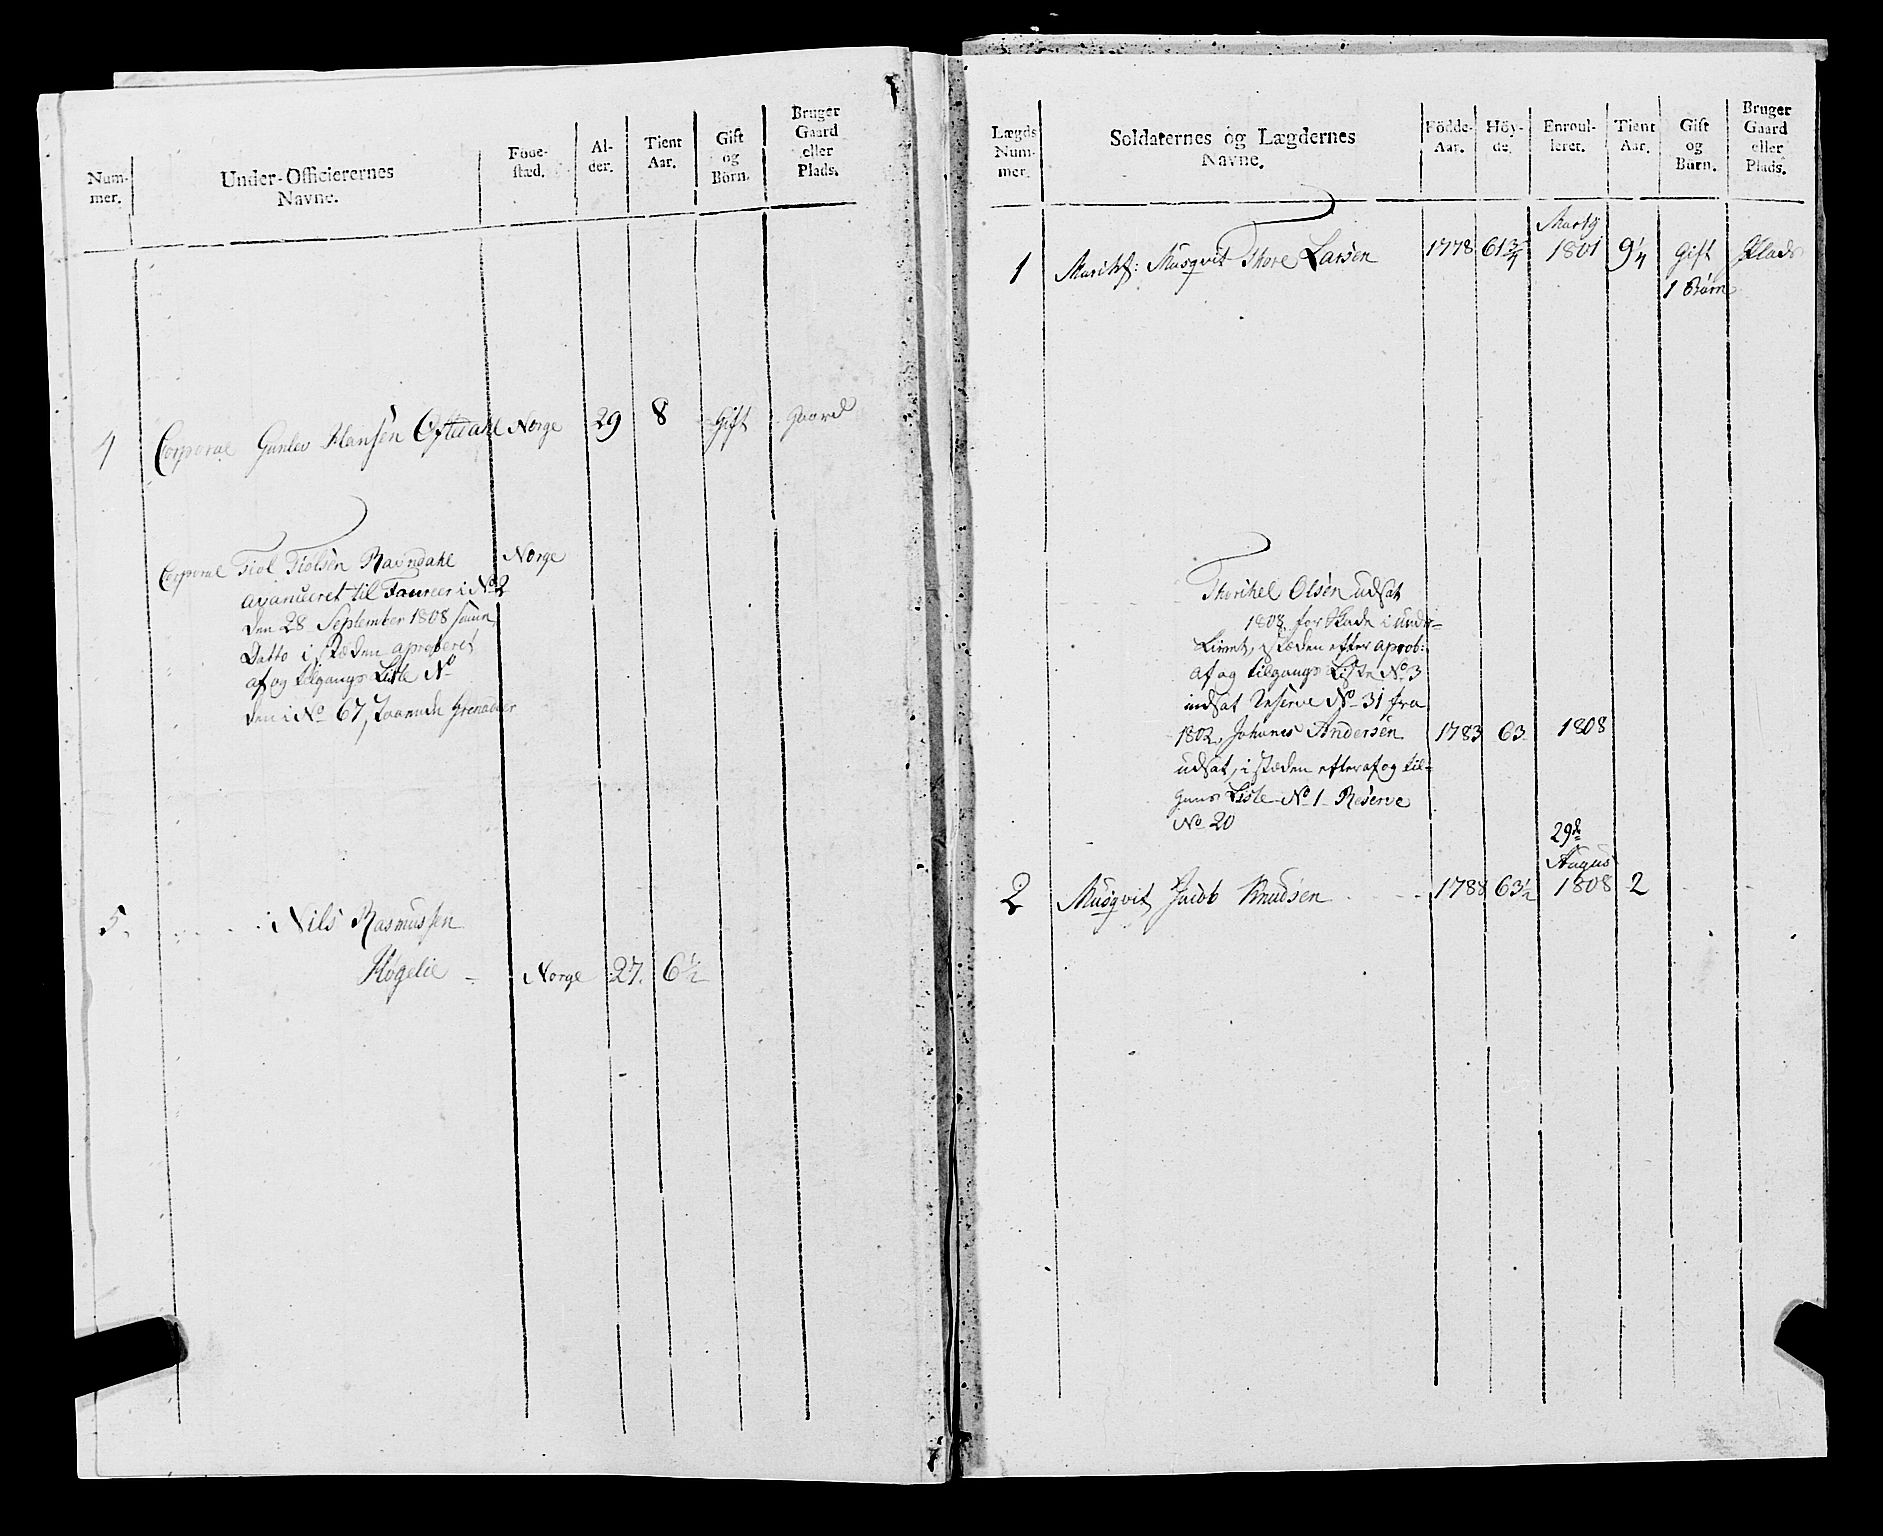 Num-
mer.
Under-Officierernes
Navne.
Föde-
sted.
Al-
der.
Tient
Aar.
Gift
og
Börn.
Bruger
Gaard
eller
Plads.
4 Corporal Gunlev Hansen Oftedahl Norge 29 8 Gift Gaard
Corporal Tiøl Tiølsen Ravndahl Norge
avanceret til Foureer i No 2
den 28 September 1808 samme
Datto i stæden aproberet
af og tilgangs Liste No
den i No 67, Grenadeer
5. Nils Rasmussen
Høgelie Norge 27. 6 1/2
Lægds
Num-
mer.
Soldaternes og Lægdernes
Navne.
Födde-
Aar.
Höy-
de.
Enroul-
leret.
Tient
Aar.
Gift
og
Börn.
Bruger
Gaard
eller
Plads.
Martÿ
1 Musqvit Thore Larsen 1778 61 3/4 1801 9 1/4 Gift Plads
1 Barn
Thorikel Olsen udsat
1808 for Skade i under-
Livet, i stæden efter aprob:
af og tilgangs Liste No 3
indsat Reserve No 31 fra
1802, Johanes Andersen 1783 63 1808
udsat, i stæden efter af og til-
gans Liste No 1 Reserve
No 20
29de
August
2 Musqvit Jacob Knudsen 1788 63 1/2 1808 2